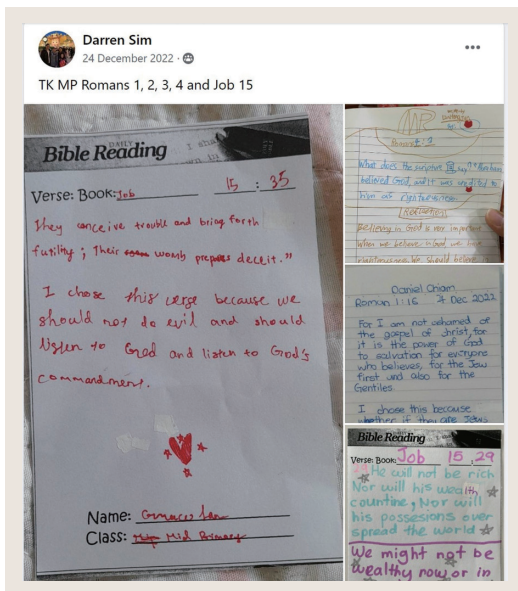 Darren Sim
24 December 2022
TK MP Romans 1, 2, 3, 4 and Job 15
DAILY
Bible Reading
Verse: Book: Job 15 : 35
They conceive trouble and bring forth
futility; Their womb prepares deceit."
I chose this verse because we
should not do evil and should
listen to God and listen to God's
commandment.
Name:
Class: Mid Primary
What does the scripture say? "Abraham
believed God, and it was credited to
him as righteousness.
Believing in God is very important
when we believe in God, we have
righteousness. We should believe in
Daniel Chiam
Roman 1:16 7 Dec 2022
For I am not ashamed of
the gospel of Christ, for
it is the power of God
to salvation for everyone
who believes, for the Jew
first and also for the
Gentiles.
I chose this because
whether if they are Jews
Bible Reading
Verse: Book: Job 15 : 29
He will not be rich
Nor will his wealth
countine, Nor will
his possesions over
spread the world
We might not be
wealthy now or in